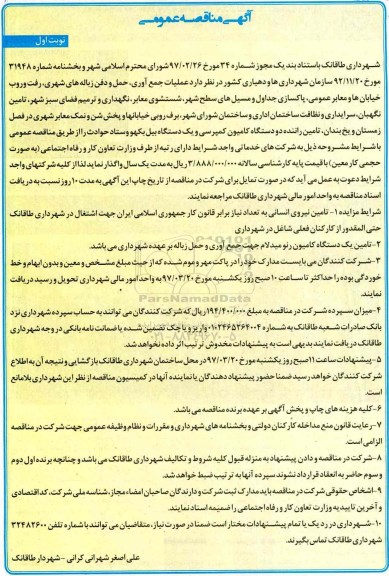 آگهی مناقصه عمومی
نوبت اول
شهرداری طاقانک باستناد بند یک مجوز شماره ۳۴ مورخ ۹۷/۰۲/۲۶ شورای محترم اسلامی شهر و بخشنامه شماره ۳۱۹۴۸
مورخ ۹۲/۱۱/۲۰ سازمان شهرداری ها و دهیاری کشور در نظر دارد عملیات جمع آوری، حمل و دفن زباله های شهری، رفت و روب
خیابان ها و معابر عمومی، پاکسازی جداول و مسیل های سطح شهر، شستشوی معابر، نگهداری و ترمیم فضای سبز شهر، تامین
نگهبان، سرایداری و نظافت ساختمان اداری و ساختمان شورای شهر، برف روبی خیابانها و پخش شن و نمک معابر شهری در فصل
زمستان و یخ بندان، تامین راننده دو دستگاه کامیون کمپرسی و یک دستگاه بیل بکهو و ستاد حوادث را از طریق مناقصه عمومی
با شرایط مشروحه ذیل به شرکت های خدماتی واجد شرایط و دارای رتبه از طرف وزارت تعاون کار و رفاه اجتماعی (به صورت
حجمی کار معین) با قیمت پایه کارشناسی سالانه ۳/۸۸۸/۰۰۰/۰۰۰ ریال به مدت یک سال واگذار نماید لذا از کلیه شرکتهای واجد
شرایط دعوت به عمل می آید که در صورت تمایل برای شرکت در مناقصه از تاریخ چاپ این آگهی به مدت ۱۰ روز نسبت به دریافت
اسناد مناقصه به واحد امور مالی شهرداری طاقانک مراجعه نمایند.
شرایط مزایده ۱- تامین نیروی انسانی به تعداد نیاز برابر قانون کار جمهوری اسلامی ایران جهت اشتغال در شهرداری طاقانک
حتی المقدور از کارکنان فعلی شاغل در شهرداری
۲-تامین یک دستگاه کامیون رنو میدلام جهت جمع آوری و حمل زباله بر عهده شهرداری می باشد.
۳-شرکت کنندگان می بایست مدارک خود را در پاکت مهر و موم شده که از حیث مبلغ مشخص و معین و بدون ابهام و خط
خوردگی بوده را حداکثر تا ساعت ۱۰ صبح روز یکشنبه مورخ ۹۷/۰۳/۲۰ به واحد امور مالی شهرداری تحویل و رسید دریافت
نمایند.
۴-میزان سپرده شرکت در مناقصه به مبلغ ۱۹۴/۴۰۰/۰۰۰ ریال که شرکت کنندگان می توانند به حساب سپرده شهرداری نزد
بانک صادرات شعبه طاقانک به شماره ۰۱۰۲۴۶۵۲۶۴۰۰۴ واریز و یا چک تضمین شده یا ضمانت نامه بانکی در وجه شهرداری
طاقانک دریافت نمایند بدیهی است به پیشنهادات مخدوش ترتیب اثر داده نخواهد شد.
۵-پیشنهادات ساعت ۱۱ صبح روز یکشنبه مورخ ۹۷/۰۳/۲۰ در محل ساختمان شهرداری طاقانک بازگشایی و نتیجه آن به اطلاع
شرکت کنندگان خواهد رسید ضمنا حضور پیشنهاد دهندگان یا نماینده آنها در کمیسیون مناقصه از نظر این شهرداری بلامانع
است.
۶-کلیه هزینه های چاپ و پخش آگهی بر عهده برنده مناقصه می باشد.
۷-رعایت قانون منع مداخله کارکنان دولتی و بخشنامه های شهرداری و مقررات و نظام وظیفه عمومی جهت شرکت در مناقصه
الزامی است.
۸-شرکت در مناقصه و دادن پیشنهاد به منزله قبول کلیه شروط و تکالیف شهرداری طاقانک می باشد و چنانچه برنده اول دوم
و سوم حاضر به انعقاد قرارداد نشوند سپرده آنها به ترتیب ضبط خواهد شد.
۹-اشخاص حقوقی شرکت در مناقصه باید مدارک ثبت شرکت و دارندگان صاحبان امضاء مجاز، شناسه ملی شرکت، کد اقتصادی
و آخرین تاییدیه وزارت تعاون کار و رفاه اجتماعی را ضمیمه اسناد نمایند.
۱۰-شهرداری در رد یک یا تمام پیشنهادات مختار است ضمنا در صورت نیاز، متقاضیان می توانند با شماره تلفن ۳۲۴۸۲۶۰۰
شهرداری طاقانک تماس بگیرند.
علی اصغر شهرانی کرانی - شهردار طاقانک
ParsNamadData